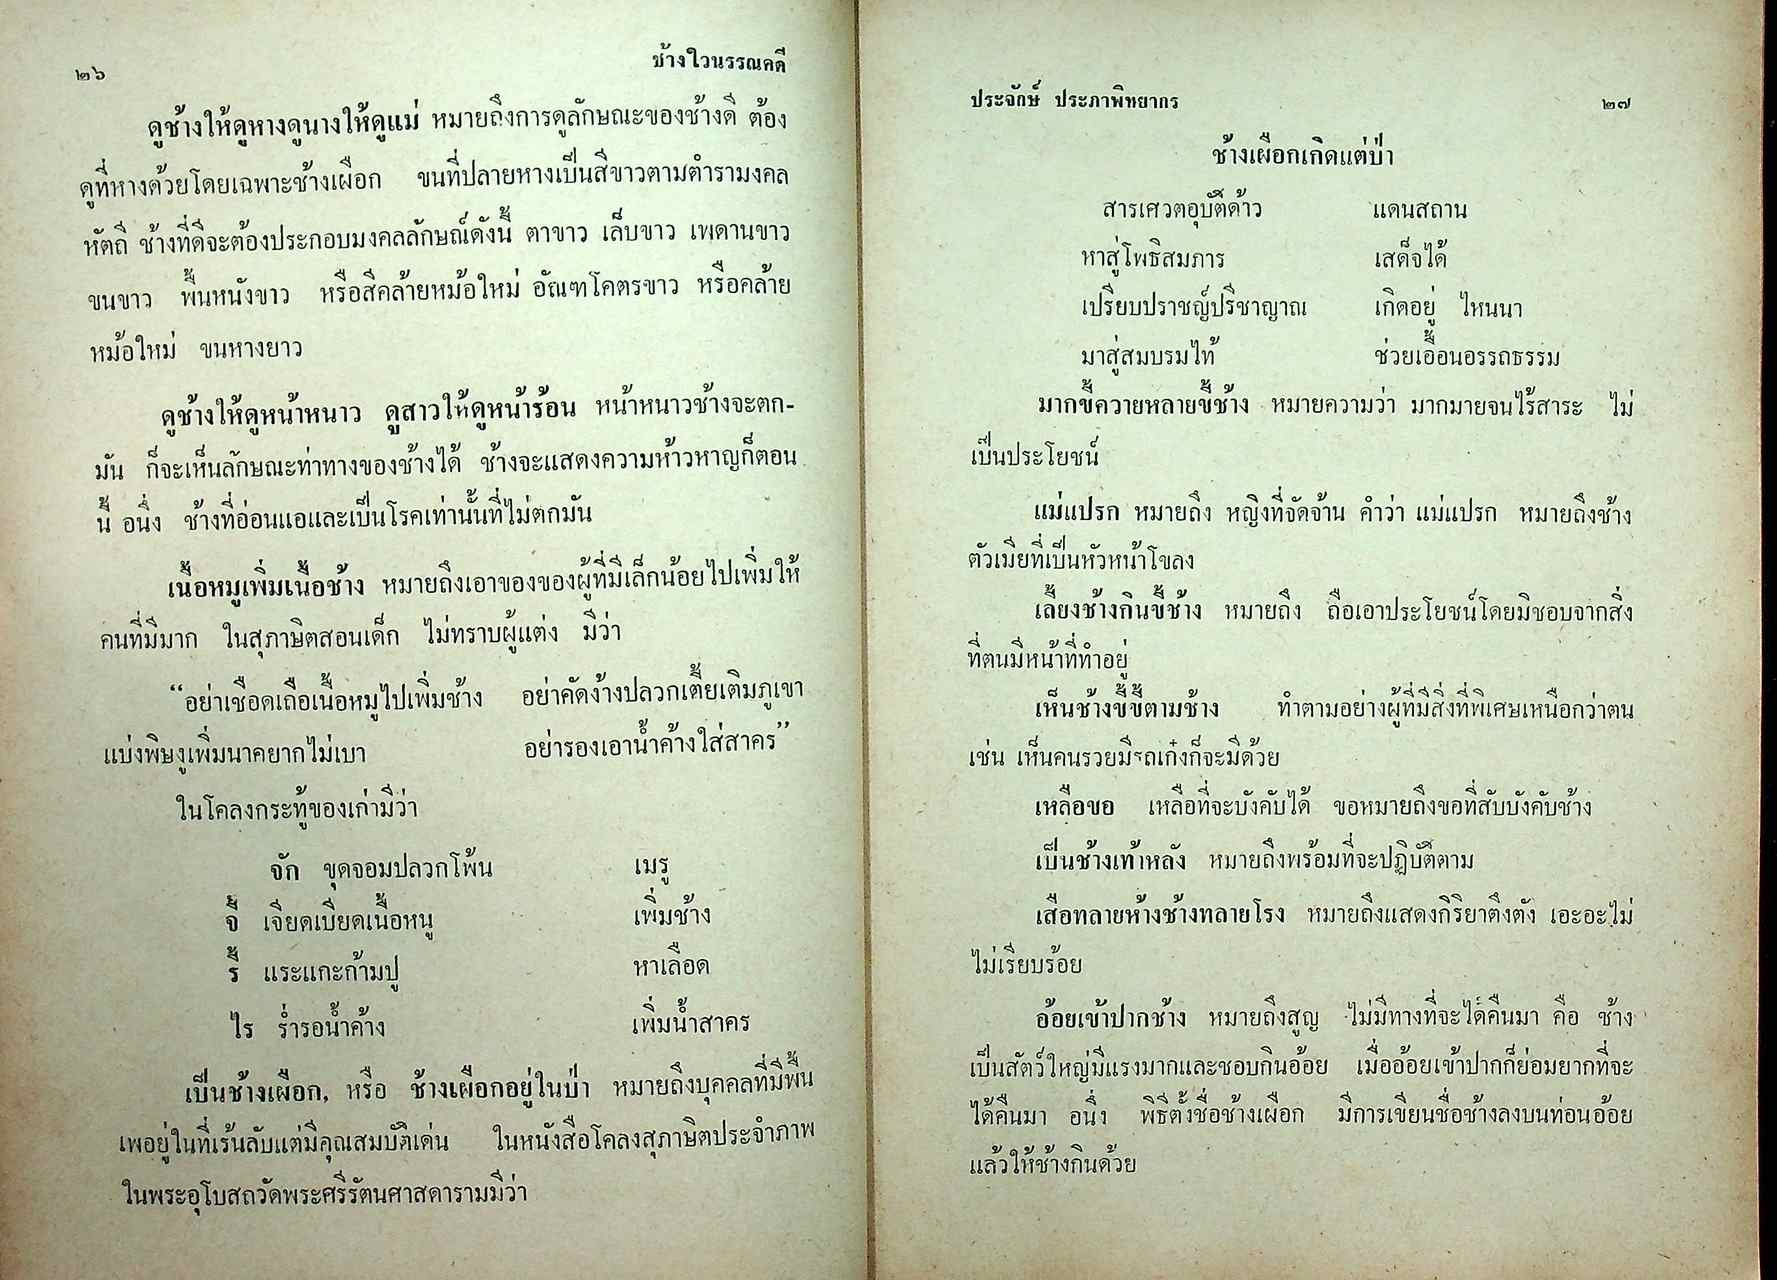 ๒๖
ช้างในวรรณคดี
ดูช้างให้ดูหางดูนางให้ดูแม่ หมายถึงการดูลักษณะของช้างดี ต้อง
ดูที่หางด้วยโดยเฉพาะช้างเผือก ขนที่ปลายหางเป็นสีขาวตามตำรามงคล
หัตถี ช้างที่ดีจะต้องประกอบมงคลลักษณ์ดังนี้ ตาขาว เล็บขาว เพดานขาว
ขนขาว พื้นหนังขาว หรือสีคล้ายหม้อใหม่ อัณฑโคตรขาว หรือคล้าย
หม้อใหม่ ขนหางยาว
ดูช้างให้ดูหน้าหนาว ดูสาวให้ดูหน้าร้อน หน้าหนาวช้างจะตก-
มัน ก็จะเห็นลักษณะท่าทางของช้างได้ ช้างจะแสดงความห้าวหาญก็ตอน
นี้ อนึ่ง ช้างที่อ่อนแอและเป็นโรคเท่านั้นที่ไม่ตกมัน
เนื้อหมูเพิ่มเนื้อช้าง หมายถึงเอาของของผู้ที่มีเล็กน้อยไปเพิ่มให้
คนที่มีมาก ในสุภาษิตสอนเด็ก ไม่ทราบผู้แต่ง มีว่า
“อย่าเชือดเถือเนื้อหมูไปเพิ่มช้าง อย่าคัดง้างปลวกเตี้ยเติมภูเขา
แบ่งพิษงูเพิ่มนาคยากไม่เบา อย่ารองเอาน้ำค้างใส่สาคร”
ในโคลงกระทู้ของเก่ามีว่า
จัก ขุดจอมปลวกโพ้น เมรู
จี้ เจียดเบียดเนื้อหนู เพิ่มช้าง
รี้ แระแกะก้ามปู หาเลือด
ไร ร่ำรอน้ำค้าง เพิ่มน้ำสาคร
เป็นช้างเผือก, หรือ ช้างเผือกอยู่ในป่า หมายถึงบุคคลที่มีพื้น
เพอยู่ในที่เร้นลับแต่มีคุณสมบัติเด่น ในหนังสือโคลงสุภาษิตประจำภาพ
ในพระอุโบสถวัดพระศรีรัตนศาสดารามมีว่า
ประจักษ์ ประภาพิทยากร
๒๗
ช้างเผือกเกิดแต่ป่า
สารเศวตอุบัติด้าว แดนสถาน
หาสู่โพธิสมภาร เสด็จได้
เปรียบปราชญ์ปรีชาญาณ เกิดอยู่ ไหนนา
มาสู่สมบรมไท้ ช่วยเอื้อนอรรถธรรม
มากขี้ควายหลายขี้ช้าง หมายความว่า มากมายจนไร้สาระ ไม่
เป็นประโยชน์
แม่แปรก หมายถึง หญิงที่จัดจ้าน คำว่า แม่แปรก หมายถึงช้าง
ตัวเมียที่เป็นหัวหน้าโขลง
เลี้ยงช้างกินขี้ช้าง หมายถึง ถือเอาประโยชน์โดยมิชอบจากสิ่ง
ที่ตนมีหน้าที่ทำอยู่
เห็นช้างขี้ขี้ตามช้าง ทำตามอย่างผู้ที่มีสิ่งที่พิเศษเหนือกว่าตน
เช่น เห็นคนรวยมีรถเก๋งก็จะมีด้วย
เหลือขอ เหลือที่จะบังคับได้ ขอหมายถึงขอที่สับบังคับช้าง
เป็นช้างเท้าหลัง หมายถึงพร้อมที่จะปฏิบัติตาม
เสือทลายห้างช้างทลายโรง หมายถึงแสดงกิริยาตึงตัง เอะอะไม่
ไม่เรียบร้อย
อ้อยเข้าปากช้าง หมายถึงสูญ ไม่มีทางที่จะได้คืนมา คือ ช้าง
เป็นสัตว์ใหญ่มีแรงมากและชอบกินอ้อย เมื่ออ้อยเข้าปากก็ย่อมยากที่จะ
ได้คืนมา อนึ่ง พิธีตั้งชื่อช้างเผือก มีการเขียนชื่อช้างลงบนท่อนอ้อย
แล้วให้ช้างกินด้วย